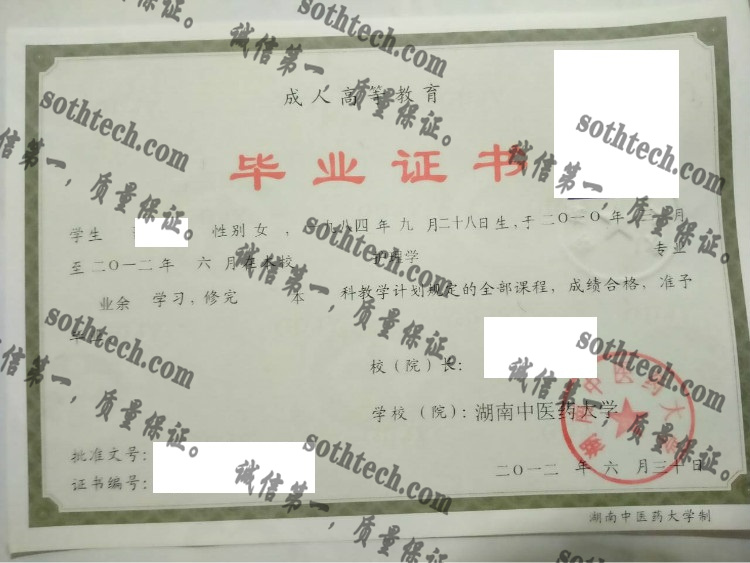 成人高等教育
毕业证书
学生 性别 女 , 一九八四 年 九 月二十八日生,于 二〇一〇年 月
至 二〇一二年 六 月在本校 护理学 专业
业余 学习,修完 本 科教学计划规定的全部课程,成绩合格,准予
校(院)长:
学校(院):湖南中医药大学
批准文号:
证书编号:
二〇一二 年 六 月三十日
湖南中医药大学制
湖南中医药大学
sothtech.com
诚信第一,质量保证。
sothtech.com
诚信第一,质量保证。
sothtech.com
诚信第一,质量保证。
sothtech.com
诚信第一,质量保证。
sothtech.com
诚信第一,质量保证。
sothtech.com
诚信第一,质量保证。
sothtech.com
诚信第一,质量保证。
sothtech.com
诚信第一,质量保证。
sothtech.com
诚信第一,质量保证。